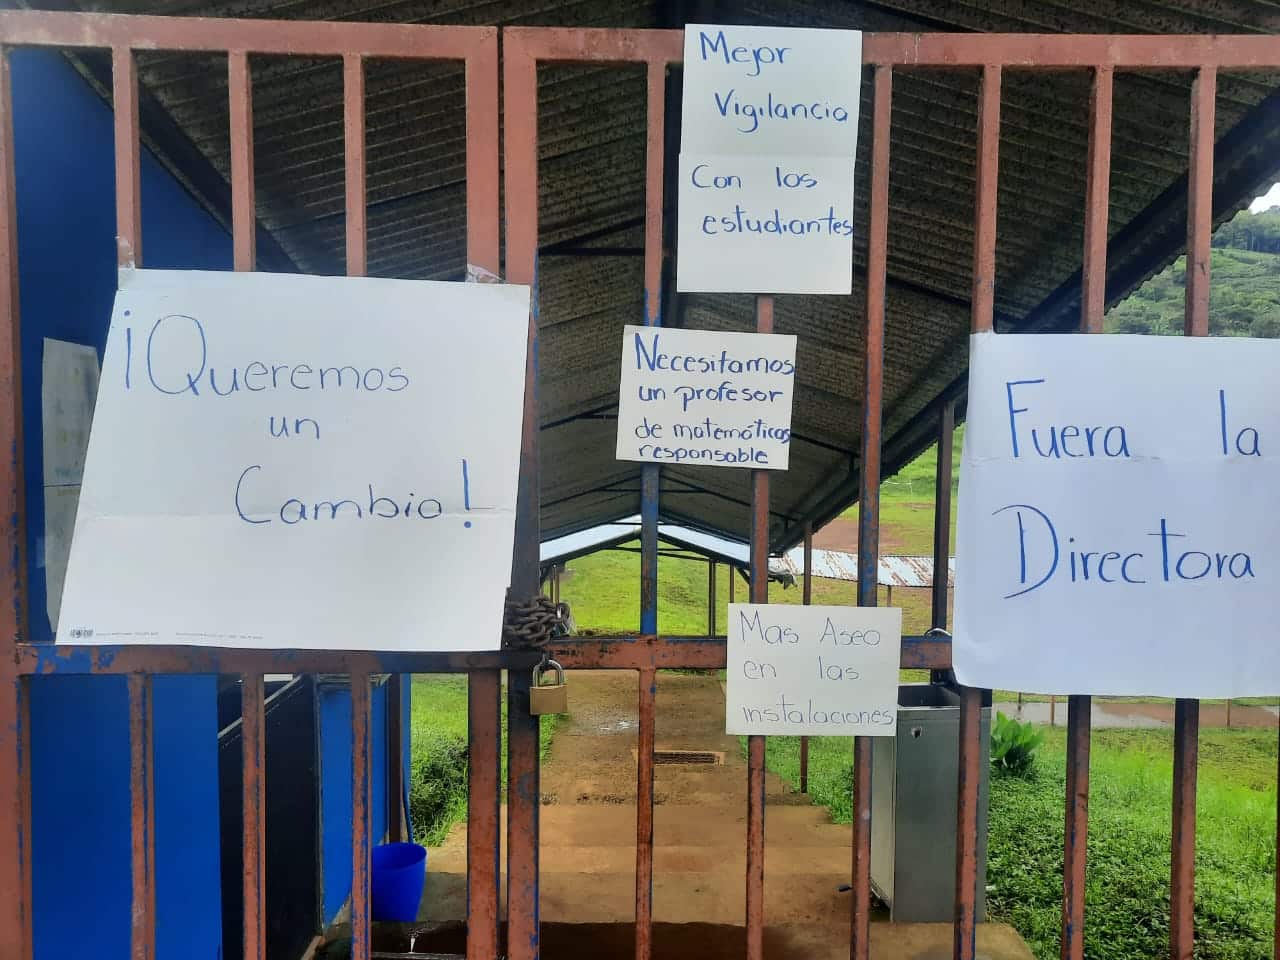 ¡Queremos
un
Cambio!
Mejor
Vigilancia
Con los
estudiantes
Necesitamos
un profesor
de matemáticas
responsable
Mas Aseo
en las
instalaciones
Fuera la
Directora